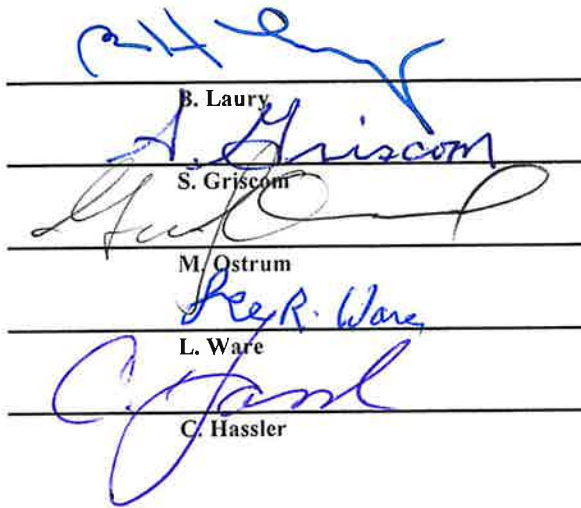 B. Laury
S. Griscom
S. Griscom
M. Ostrum
Lee R. Ware
L. Ware
C. Hassler